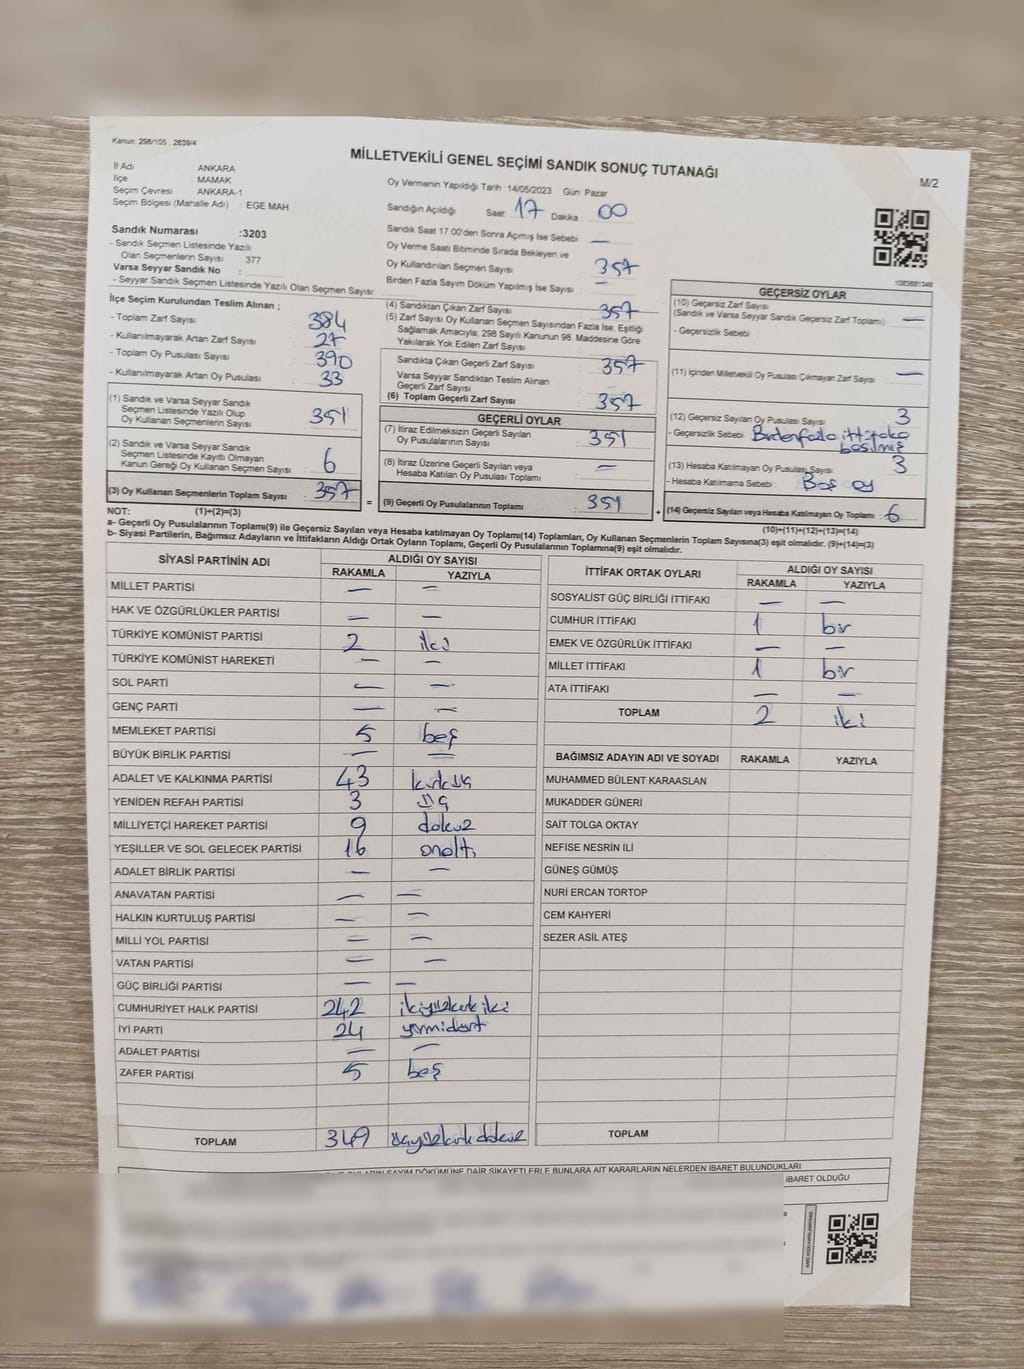 Kanun: 298/105 , 2839/4
MİLLETVEKİLİ GENEL SEÇİMİ SANDIK SONUÇ TUTANAĞI
M/2
İl Adı : ANKARA
İlçe : MAMAK
Seçim Çevresi : ANKARA-1
Seçim Bölgesi (Mahalle Adı) : EGE MAH
Sandık Numarası :3203
- Sandık Seçmen Listesinde Yazılı
Olan Seçmenlerin Sayısı : 377
Varsa Seyyar Sandık No :
- Seyyar Sandık Seçmen Listesinde Yazılı Olan Seçmen Sayısı:
Oy Vermenin Yapıldığı Tarih : 14/05/2023 Gün: Pazar
Sandığın Açıldığı Saat: 17 Dakika 00
Sandık Saat 17.00'den Sonra Açılmış İse Sebebi: —
Oy Verme Saati Bitiminde Sırada Bekleyen ve
Oy Kullandırılan Seçmen Sayısı : 357
Birden Fazla Sayım Döküm Yapılmış İse Sayısı : —
1083681348
İlçe Seçim Kurulundan Teslim Alınan ;
- Toplam Zarf Sayısı : 384
- Kullanılmayarak Artan Zarf Sayısı : 27
- Toplam Oy Pusulası Sayısı : 390
- Kullanılmayarak Artan Oy Pusulası : 33
(1) Sandık ve Varsa Seyyar Sandık
Seçmen Listesinde Yazılı Olup
Oy Kullanan Seçmenlerin Sayısı : 351
(2) Sandık ve Varsa Seyyar Sandık
Seçmen Listesinde Kayıtlı Olmayan
Kanun Gereği Oy Kullanan Seçmen Sayısı : 6
(3) Oy Kullanan Seçmenlerin Toplam Sayısı : 357
(1)+(2)=(3)
(4) Sandıktan Çıkan Zarf Sayısı : 357
(5) Zarf Sayısı Oy Kullanan Seçmen Sayısından Fazla İse, Eşitliği
Sağlamak Amacıyla; 298 Sayılı Kanunun 98. Maddesine Göre
Yakılarak Yok Edilen Zarf Sayısı :
Sandıkta Çıkan Geçerli Zarf Sayısı : 357
Varsa Seyyar Sandıktan Teslim Alınan
Geçerli Zarf Sayısı :
(6) Toplam Geçerli Zarf Sayısı : 357
GEÇERLİ OYLAR
(7) İtiraz Edilmeksizin Geçerli Sayılan
Oy Pusulalarının Sayısı : 351
(8) İtiraz Üzerine Geçerli Sayılan veya
Hesaba Katılan Oy Pusulası Toplamı : —
= (9) Geçerli Oy Pusulalarının Toplamı : 351 +
GEÇERSİZ OYLAR
(10) Geçersiz Zarf Sayısı
(Sandık ve Varsa Seyyar Sandık Geçersiz Zarf Toplamı) : —
- Geçersizlik Sebebi :
(11) İçinden Milletvekili Oy Pusulası Çıkmayan Zarf Sayısı : —
(12) Geçersiz Sayılan Oy Pusulası Sayısı : 3
- Geçersizlik Sebebi : Birdenfazla ittifaka
basılmış
(13) Hesaba Katılmayan Oy Pusulası Sayısı : 3
- Hesaba Katılmama Sebebi : Boş oy
(14) Geçersiz Sayılan veya Hesaba Katılmayan Oy Toplamı : 6
(10)+(11)+(12)+(13)=(14)
NOT:
a- Geçerli Oy Pusulalarının Toplamı(9) ile Geçersiz Sayılan veya Hesaba katılmayan Oy Toplamı(14) Toplamları, Oy Kullanan Seçmenlerin Toplam Sayısına(3) eşit olmalıdır. (9)+(14)=(3)
b- Siyasi Partilerin, Bağımsız Adayların ve İttifakların Aldığı Ortak Oyların Toplamı, Geçerli Oy Pusulalarının Toplamına(9) eşit olmalıdır.
SİYASİ PARTİNİN ADI ALDIĞI OY SAYISI
RAKAMLA YAZIYLA
MİLLET PARTİSİ — —
HAK VE ÖZGÜRLÜKLER PARTİSİ — —
TÜRKİYE KOMÜNİST PARTİSİ 2 iki
TÜRKİYE KOMÜNİST HAREKETİ — —
SOL PARTİ — —
GENÇ PARTİ — —
MEMLEKET PARTİSİ 5 beş
BÜYÜK BİRLİK PARTİSİ — —
ADALET VE KALKINMA PARTİSİ 43 kırküç
YENİDEN REFAH PARTİSİ 3 üç
MİLLİYETÇİ HAREKET PARTİSİ 9 dokuz
YEŞİLLER VE SOL GELECEK PARTİSİ 16 onaltı
ADALET BİRLİK PARTİSİ — —
ANAVATAN PARTİSİ — —
HALKIN KURTULUŞ PARTİSİ — —
MİLLİ YOL PARTİSİ — —
VATAN PARTİSİ — —
GÜÇ BİRLİĞİ PARTİSİ — —
CUMHURİYET HALK PARTİSİ 242 ikiyüzkırkiki
İYİ PARTİ 24 yirmidört
ADALET PARTİSİ — —
ZAFER PARTİSİ 5 beş
TOPLAM 349 üçyüzkırkdokuz
İTTİFAK ORTAK OYLARI ALDIĞI OY SAYISI
RAKAMLA YAZIYLA
SOSYALİST GÜÇ BİRLİĞİ İTTİFAKI — —
CUMHUR İTTİFAKI 1 bir
EMEK VE ÖZGÜRLÜK İTTİFAKI — —
MİLLET İTTİFAKI 1 bir
ATA İTTİFAKI — —
TOPLAM 2 iki
BAĞIMSIZ ADAYIN ADI VE SOYADI RAKAMLA YAZIYLA
MUHAMMED BÜLENT KARAASLAN
MUKADDER GÜNERİ
SAİT TOLGA OKTAY
NEFİSE NESRİN İLİ
GÜNEŞ GÜMÜŞ
NURİ ERCAN TORTOP
CEM KAHYERİ
SEZER ASİL ATEŞ
TOPLAM
SAYIM DÖKÜMÜNE DAİR ŞİKAYETLERLE BUNLARA AİT KARARLARIN NELERDEN İBARET BULUNDUKLARI
İBARET OLDUĞU